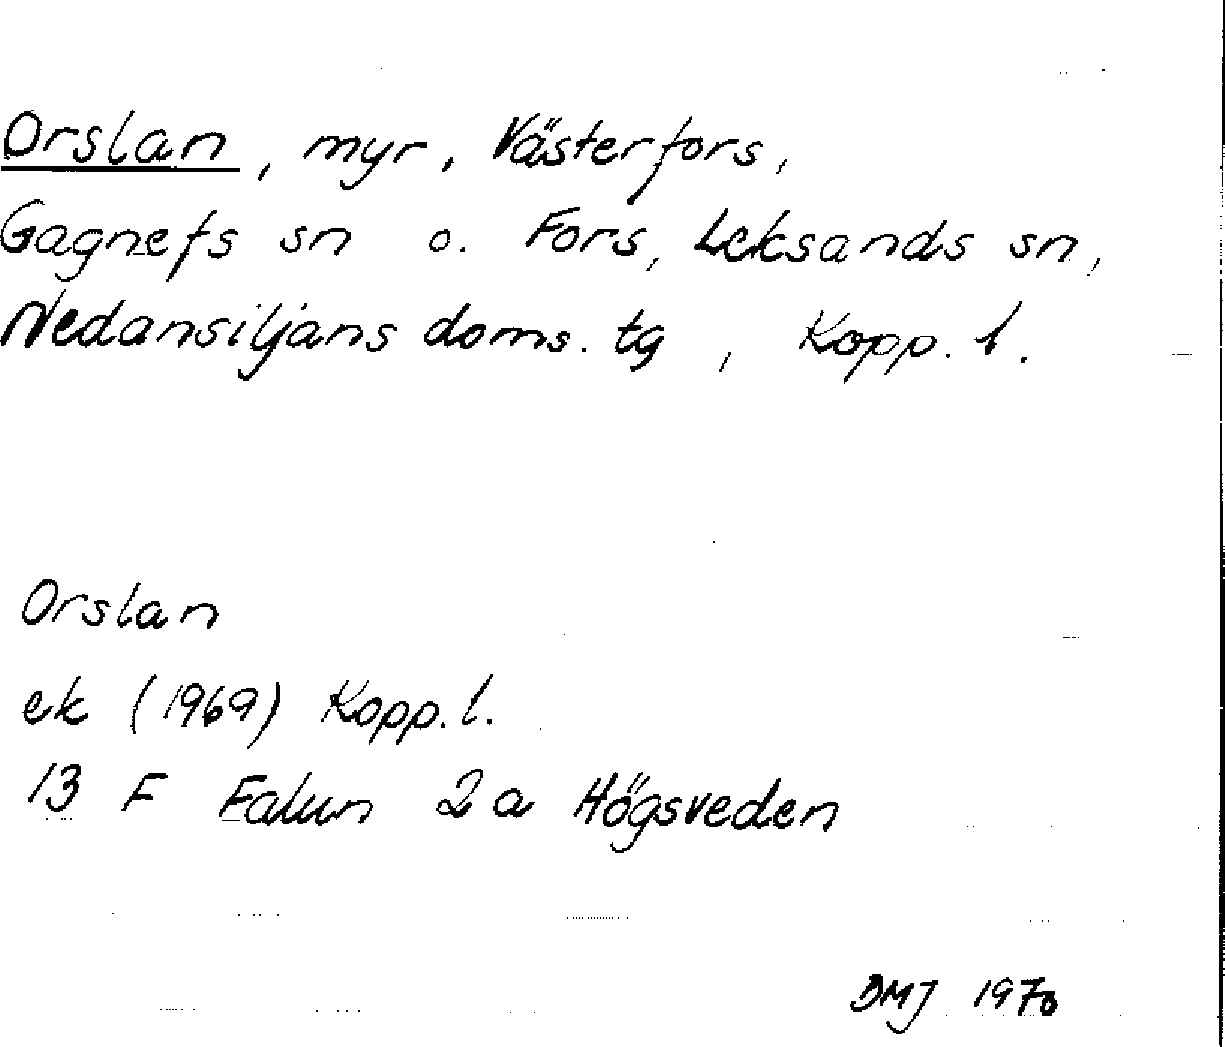 Orslan, myr, Västerfors,
Gagnefs sn o. Fors, Leksands sn,
Nedansiljans doms. tg, Kopp. l.
Orslan
ek (1969) Kopp. l.
13 F Falun 2 a Högsveden
BMJ 1970